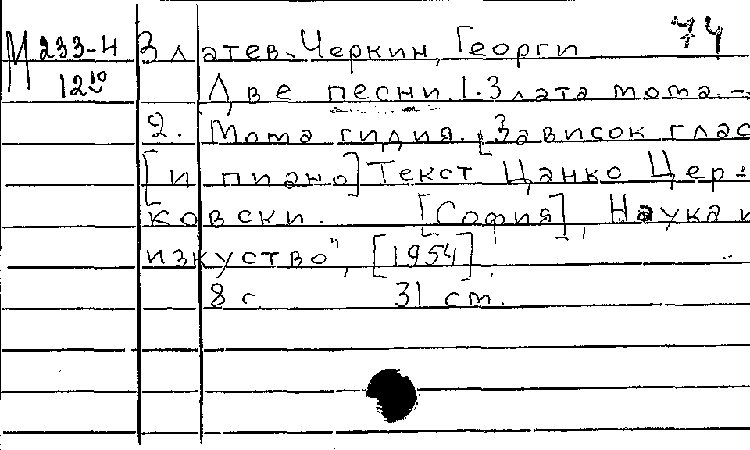 М 233-4 Златев-Черкин, Георги 74
12¹⁰ Две песни. 1. Злата мома. –
2. Мома гидия. [За висок глас
[и пиано] Текст Цанко Цер=
ковски. [София], Наука и
изкуство", [1954].
8 с. 31 см.